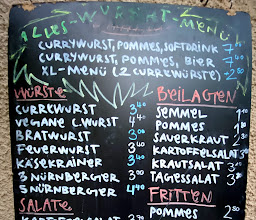 ALLES-WURSCHT-MENÜ
CURRYWURST, POMMES, SOFTDRINK 7
CURRYWURST, POMMES, BIER 7
XL-MENÜ (2 CURREWÜRSTE) 2
WÜRSTE
CURREWURST 3
VEGANE C.WURST 4
BRATWURST 3
FEUERWURST 3
KÄSEKRAINER 3
3 NÜRNBERGER 3
5 NÜRNBERGER 4
SALATE
BEILAGEN
SEMMEL 1
POMMES
SAUERKRAUT 2
KARTOFFELSALAT 3
KRAUTSALAT 3
TAGESSALAT 3
FRITTEN
POMMES 2